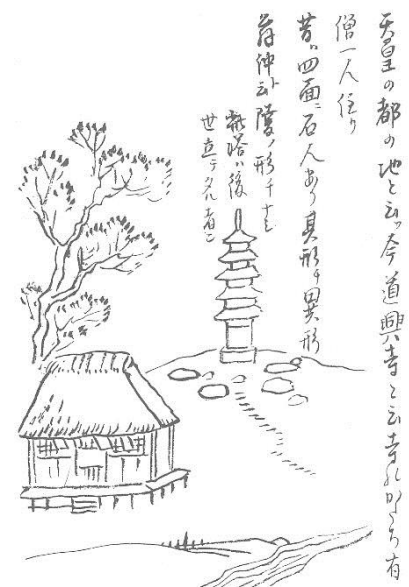 天皇の都の地と云フ今道興寺と云寺のかたち有
僧一人住り
昔ハ四面ニ石人あり其形チ異形
陵ノ形チナル
此塔ハ後
世立テタル者ニ